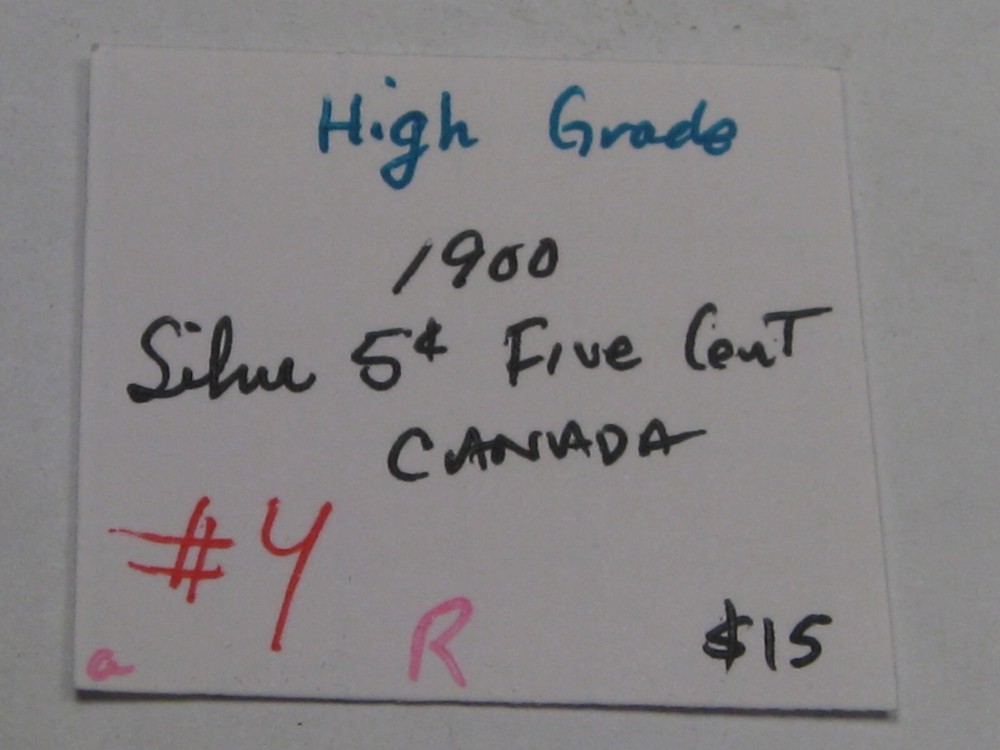 High Grade
1900
Silver 5¢ Five Cent
CANADA
#4
a R $15